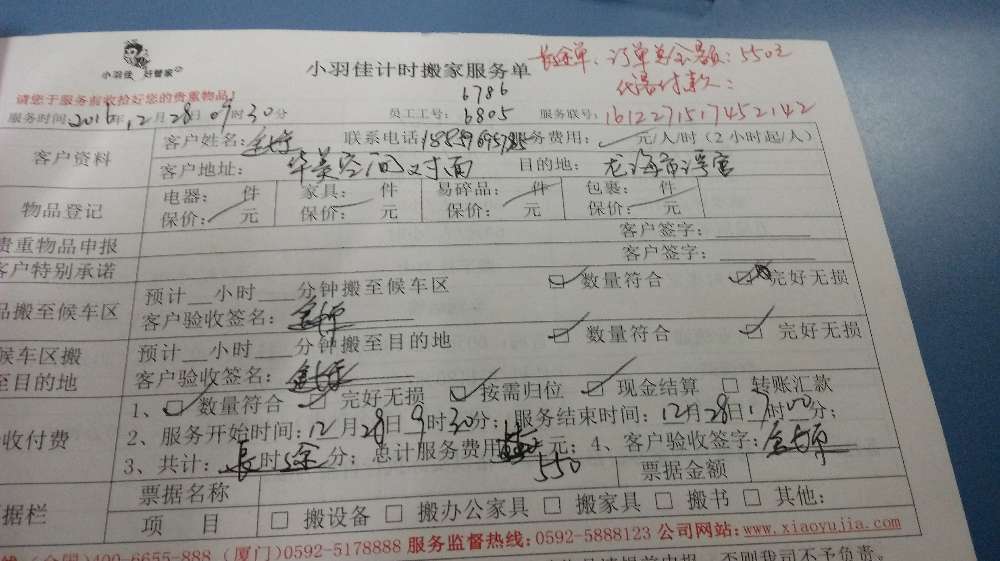 小羽佳 好管家
长途单、订单总金额：550元
小羽佳计时搬家服务单
请您于服务前收拾好您的贵重物品！
6786
服务时间：2016年12月28日09时30分 员工工号：6805 服务联号：1612271517452142
客户资料
客户姓名： 联系电话 务费用： 元/人/时（2小时起/人）
客户地址：华美空间对面 目的地：龙海市浮宫
物品登记
电器： 件 家具： 件 易碎品： 件 包裹： 件
保价： 元 保价： 元 保价： 元 保价： 元
贵重物品申报 客户签字：
客户特别承诺 客户签字：
品搬至候车区
预计 小时 分钟搬至候车区 数量符合 完好无损
客户验收签名：
候车区搬
至目的地
预计 小时 分钟搬至目的地 数量符合 完好无损
客户验收签名：
收付费
1、 数量符合 完好无损 按需归位 现金结算 转账汇款
2、服务开始时间：12月28日9时30分；服务结束时间：12月28日17时00分；
3、共计：长时途分；总计服务费用 元；4、客户验收签字：
550
据栏
票据名称 票据金额
项 目 搬设备 搬办公家具 搬家具 搬书 其他：
(全国)400-6655-888 (厦门)0592-5178888 服务监督热线：0592-5888123 公司网站：www.xiaoyujia.com
否则我司不予负责。